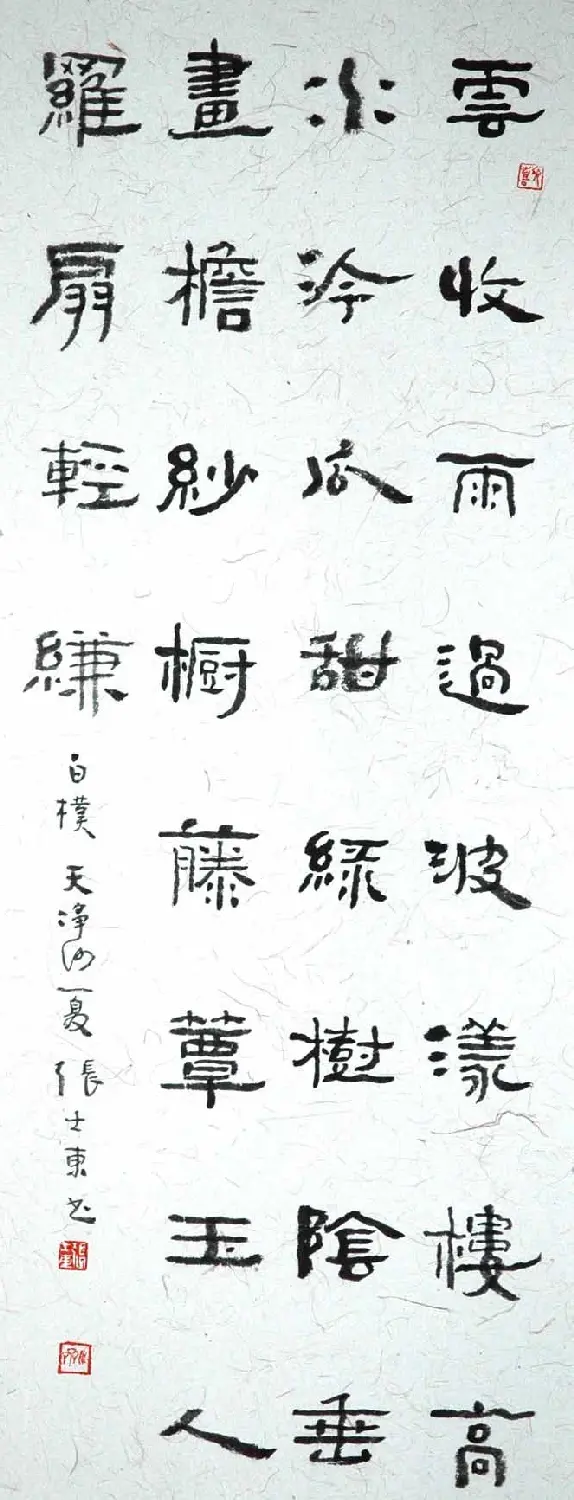 雲收雨過波漾樓高
水泠瓜甜綠樹陰垂
畫檐紗橱藤蕈玉人
羅扇輕縑
白樸 天淨沙 夏 張士東书